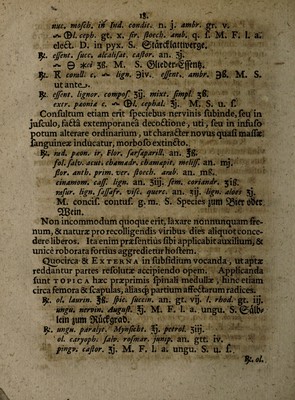 18.
nuc. mosch. in Ind. condit. n. j. ambr. gr. v.
Ol. ceph. gt. x. sir. stoech. amb. q. s. M. F. l. a.
elect. D. in pyx. S. Stärcklattwerge.
℞. essent. succ. alcalisat. castor. an. ʒj.
ʒij. M. S. Glieder-Essentz.
℞. conull. c. lign. ʒiv. essent. ambr. ʒß. M. S.
ut ante.
℞. essent. lignor. compos. ʒij. mixt. simpl. ʒß.
extr. paoniæ c. Ol. cephal. ʒj. M. S. u. s.
Consultum etiam erit speciebus nervinis subinde, seu in
jusculo, facta extemporanea decoctione, uti, seu in infuso
potum alterare ordinarium, ut character novus quasi massæ
sanguineæ inducatur, morboso extincto.
℞. rad. pæon. ir. Flor. sarsaparill. an. ʒß.
fol. salv. acut. chamædr. chamæpit. meliss. an. mj.
flor. anth. prim. ver. stoech. arab. an. mß.
cinamom. cass. lign. an. ʒiij. sem. coriandr. ʒiß.
rasur. lign. sassafr. visc. querc. an. ʒij. lign. aloes ʒj.
M. concis. contus. g. m. S. Species zum Bier oder
Wein.
Non incommodum quoque erit, laxare nonnunquam fre-
num, & naturæ pro recolligendis viribus dies aliquot conce-
dere liberos. Ita enim præsentius sibi applicabit auxilium, &
unice roborata fortius aggredietur hostem.
Quocirca & Externa in subsidium vocanda, ut aptæ
reddantur partes resolutæ accipiendo opem. Applicanda
sunt topica hæc præprimis spinali medullæ, hinc etiam
circa femora & scapulas, aliasq; partium affectarum radices.
℞. ol. laurin. ʒß. spic. succin. an. gt. vij. l. rhod. gt. iij.
ungu. nervin. August. ʒj. M. F. l. a. ungu. S. Sälb-
lein zum Rückgrad.
℞. ungu. paralyt. Mynsicht. ʒj. petrol. ʒiij.
ol. caryoph. salv. rosmar. junip. an. gtt. iv.
pingv. castor. ʒj. M. F. l. a. ungu. S. u. s.
℞. ol.